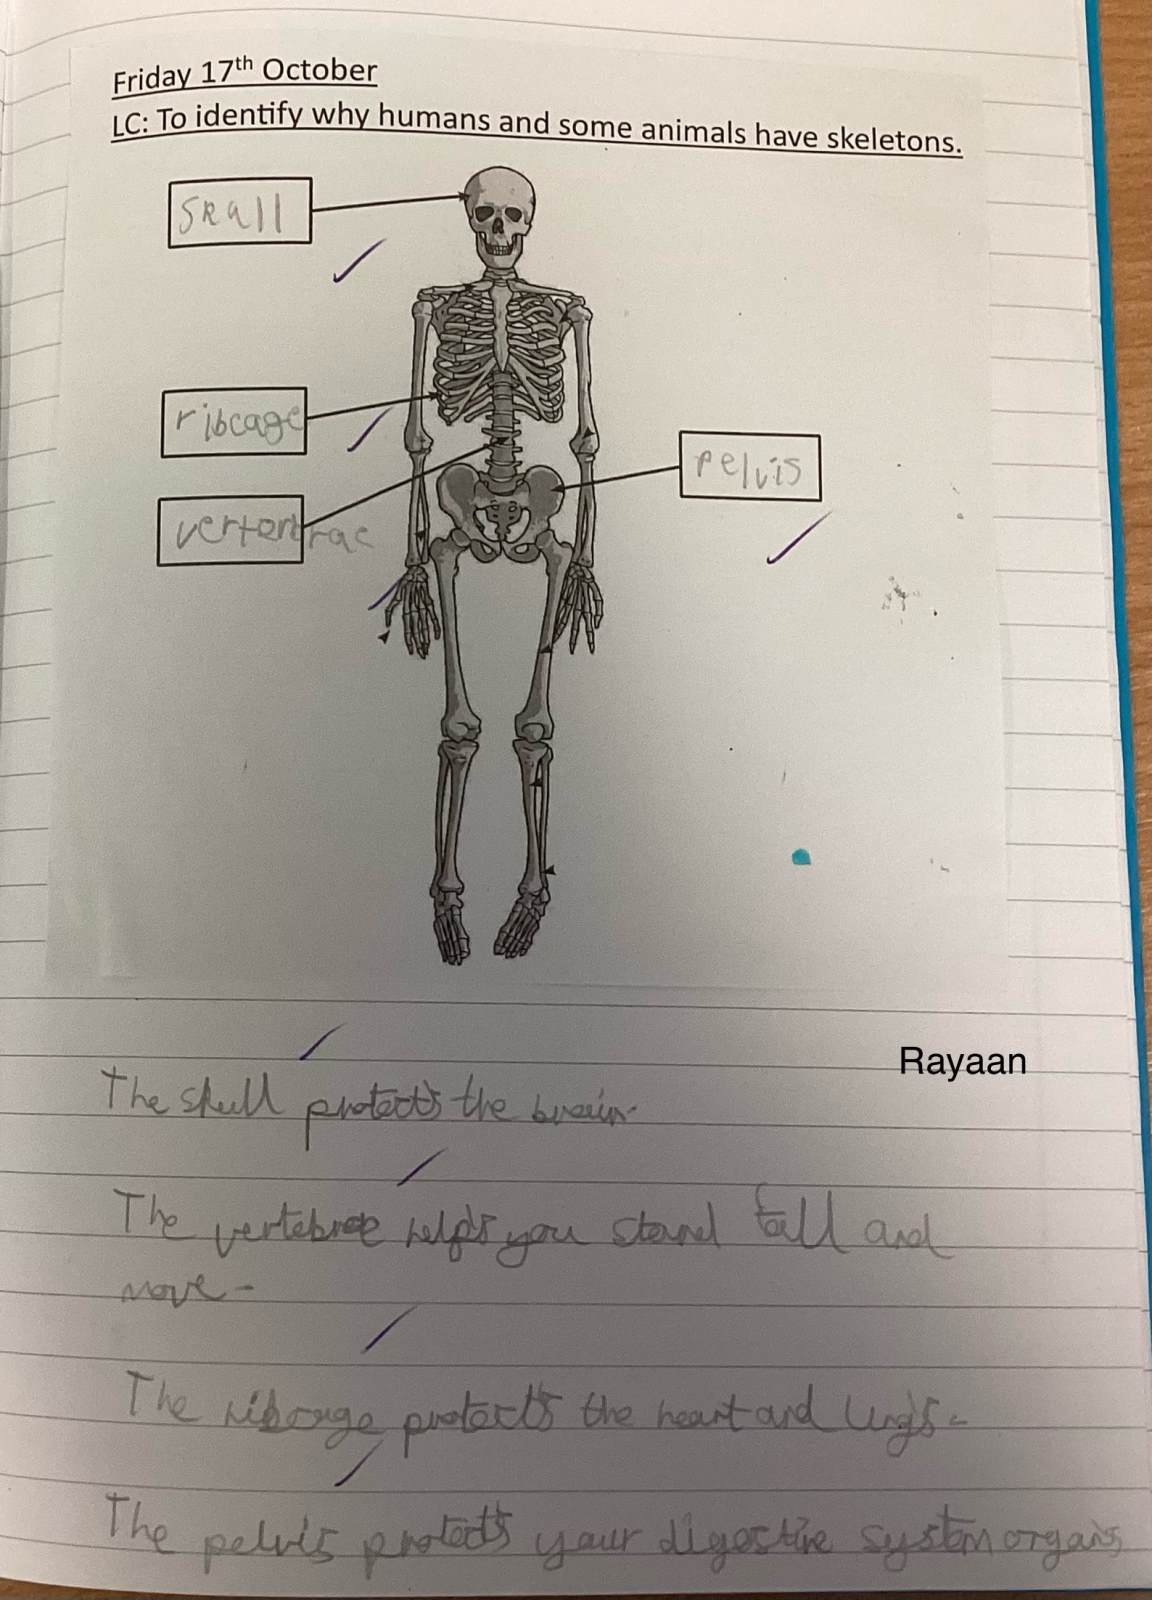 Friday 17th October
LC: To identify why humans and some animals have skeletons.
skull
ribcage
pelvis
Rayaan
The skull protects the brain.
The vertebrae helps you stand tall and
move.
The ribcage protects the heart and lungs.
The pelvis protects your digestive system organs